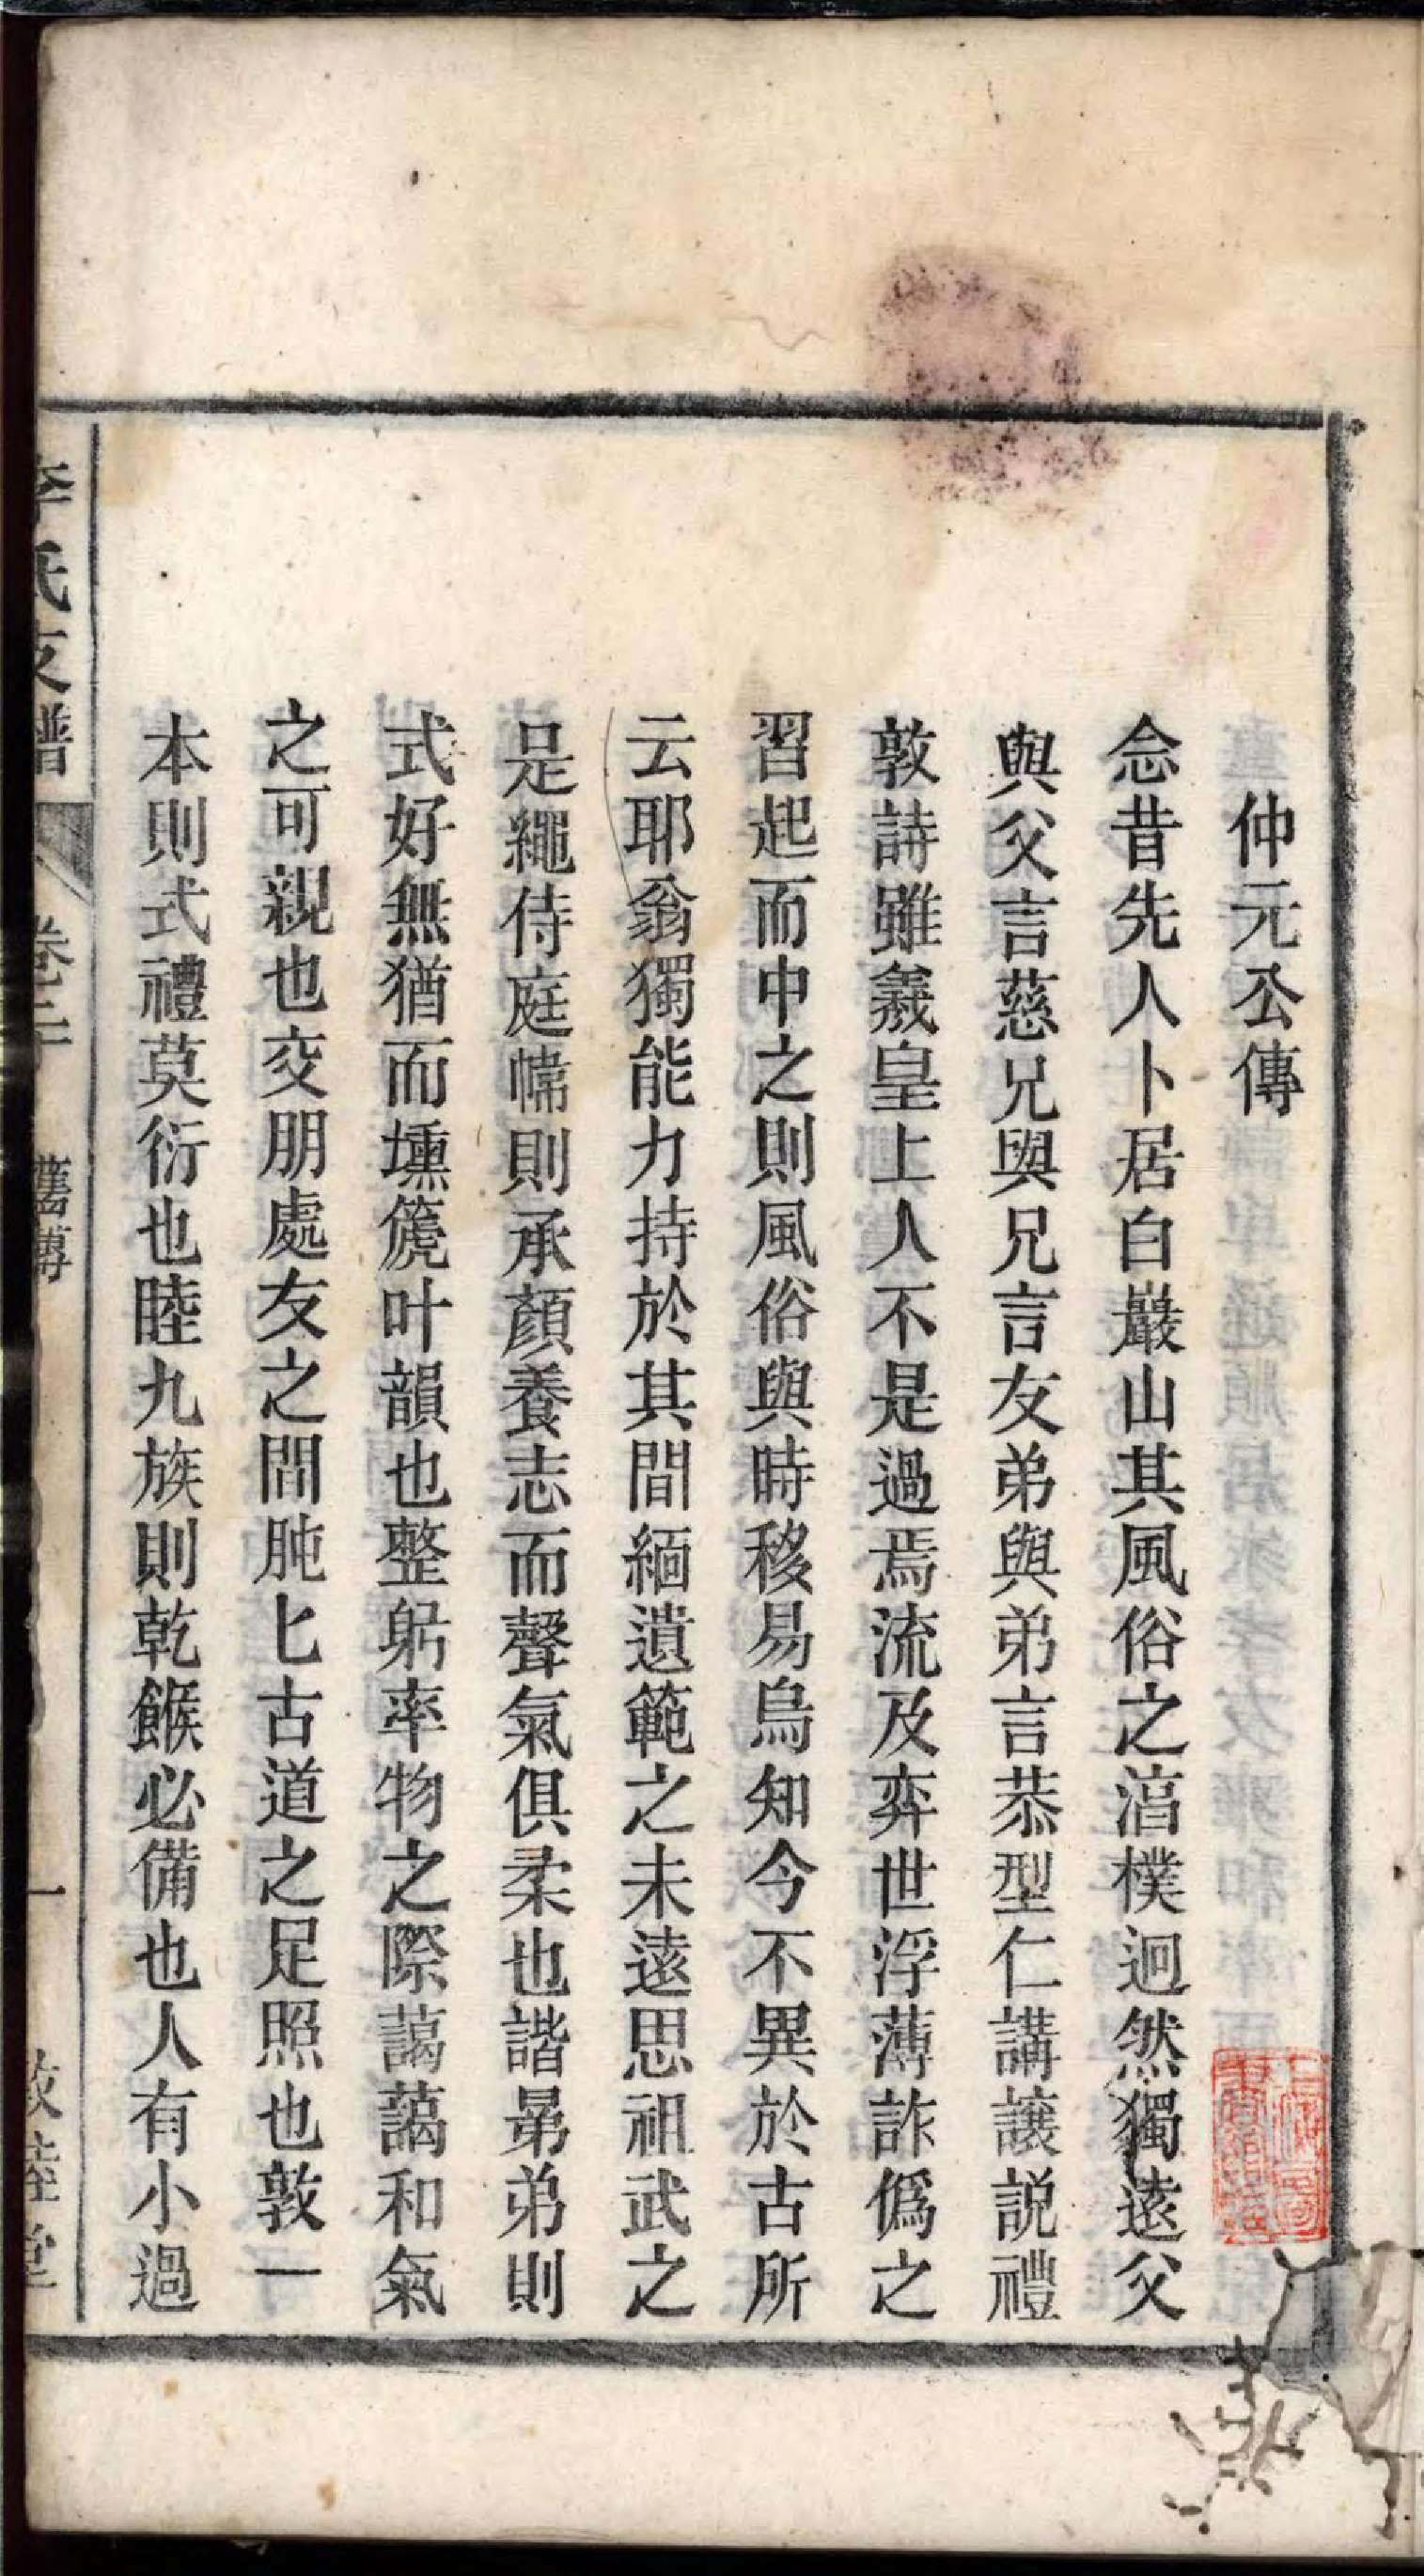 仲元公傳
念昔先人卜居白巖山其風俗之湻樸迥然獨遠父
與父言慈兄與兄言友弟與弟言恭型仁講讓説禮
敦詩雖羲皇上人不是過焉流及弈世浮薄詐僞之
習起而中之則風俗與時移易烏知今不異於古所
云耶翁獨能力持於其間緬遺範之未遠思祖武之
是繩侍庭幃則承顏養志而聲氣俱柔也諧晜弟則
式好無猶而壎篪叶韻也整躬率物之際藹藹和氣
之可親也交朋處友之間肫匕古道之足照也敦一
本則式禮莫衍也睦九族則乾餱必備也人有小過
李氏支譜 卷二 舊傳 一 敦睦堂